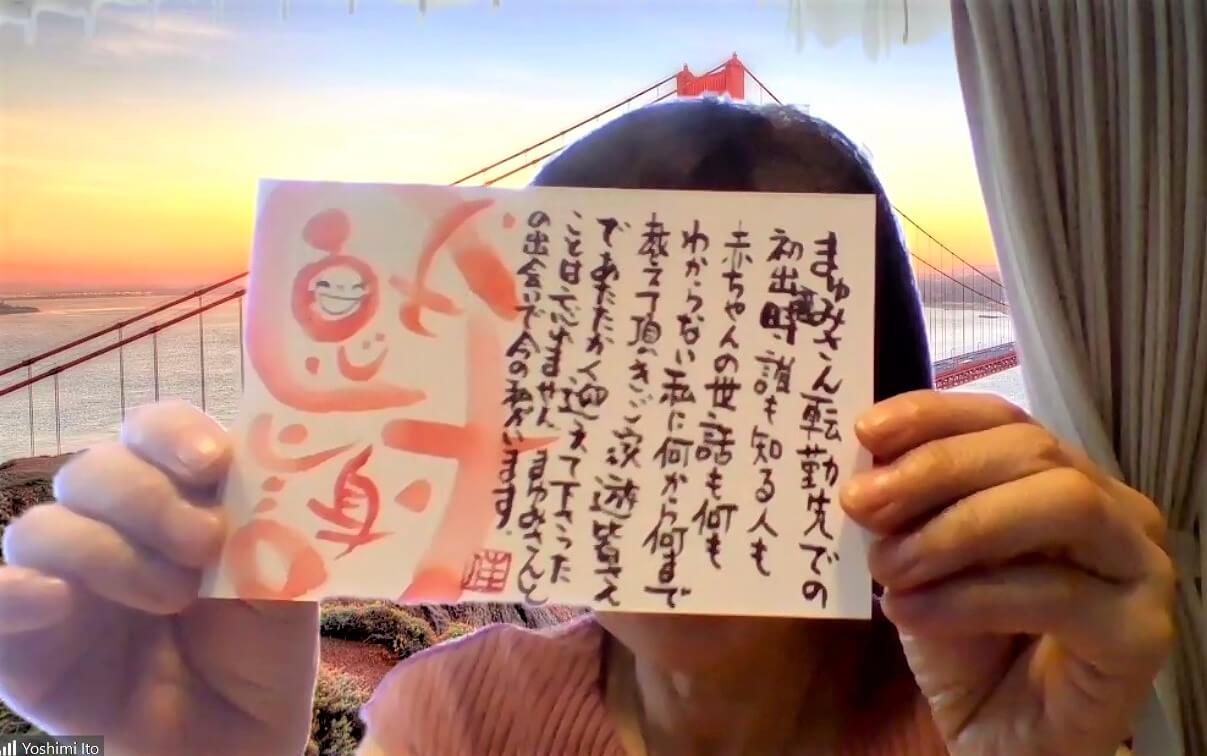 まゆみさん転勤先での
初出産時 誰も知る人も
赤ちゃんの世話も何も
わからない私に何から何まで
教えて頂きご家族皆さん
であたたかく迎えて下さった
ことは忘れません まゆみさんと
の出会いで今の私がいます。
Yoshimi Ito